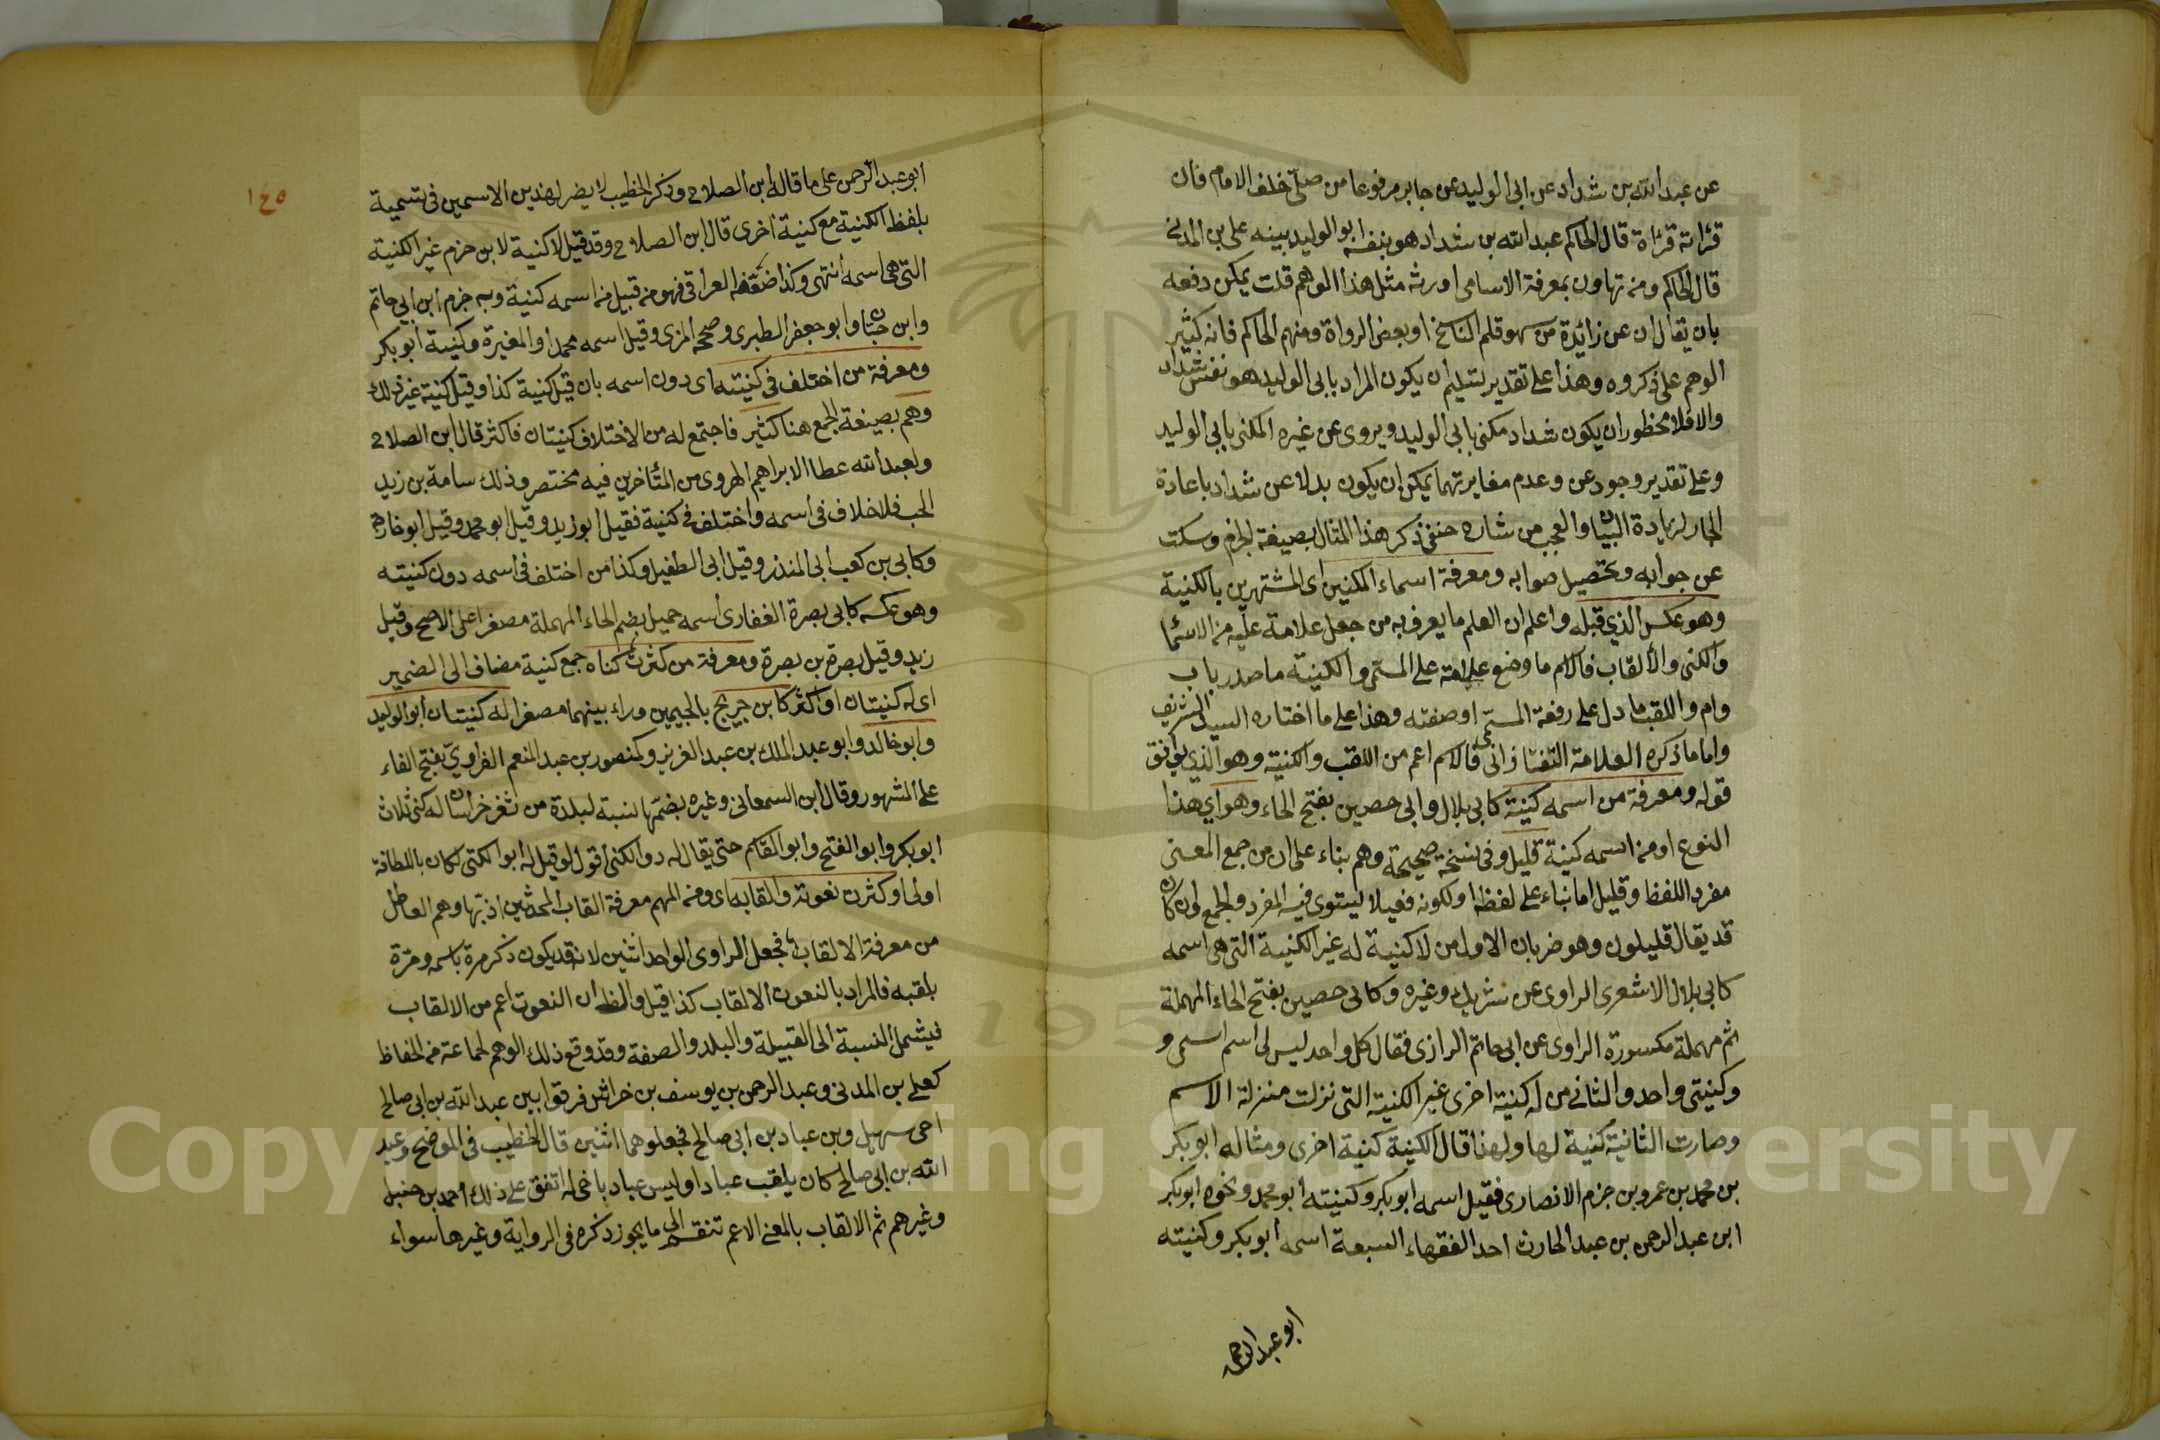 عن عبد الله بن شداد عن ابى الوليد عن جابر مرفوعا من صلّى خلف الامام فان
قرٔاته قرٔاة قال الحاكم عبد الله بن شداد هو بنفسه ابو الوليد بينه على بن المدنى
قال الحاكم ومن تهاون بمعرفة الاسامى اورثه مثل هذا الوهم قلت يمكن دفعه
بان يقال ان عن زائدة من سهو قلم الناسخ او بعض الرواة ومنهم الحاكم فانه كثير
الوهم على ذكروه وهذا على تقدير تسليم ان يكون المراد بابى الوليد هو نفس شداد
والا فلا محظور ان يكون شداد مكنى بابى الوليد ويروى عن غيره المكنى بابى الوليد
وعلى تقدير وجود عن وعدم مغايرتهما يمكن ان يكون بدلا عن شداد باعادة
الجار لزيادة البيان والعجب من شارح حنفى ذكر هذا المثال بصيغة الجزم وسكت
عن جوابه وتحصيل صوابه ومعرفة اسماء المكنين اى المشتهرين بالكنية
وهو عكس الذي قبله واعلم ان العلم ما يعرف به من جعل علامة عليه من الاسما
والكنى والألقاب فالاسم ما وضع علامة على المسمّى والكنية ما صدر باب
وام واللقب ما دل على رفعة المسمّى او صفته وهذا على ما اختاره السيد الشريف
واما ما ذكره العلامة التفتازانى فالاسم اعم من اللقب والكنية وهو الذي يوافق
قوله ومعرفة من اسمه كنية كابى بلال وابى حصين بفتح الحاء وهو اي هذا
النوع او من اسمه كنية قليل وفى نسخة صحيحة وهم بناء على ان من جمع المعنى
مفرد اللفظ وقليل اما بناء على لفظه او لكونه فعيلا يستوى فيه المفرد والجمع وان كان
قد يقال قليلون وهو ضربان الاول من لا كنية له غير الكنية التى هى اسمه
كابى بلال الاشعرى الراوى عن شريك وغيره وكابى حصين بفتح الحاء المهملة
ثم مهملة مكسورة الراوى عن ابى حاتم الرازى فقال كل واحد ليس لى اسم اسمى و
وكنيتى واحد والثانى من له كنية اخرى غير الكنية التى نزلت منزلة الاسم
وصارت الثانية كنية لها ولهذا قال الكنية كنية اخرى ومثاله ابو بكر
بن محمد بن عمرو بن حزم الانصارى فقيل اسمه ابو بكر وكنيته ابو محمد ونحوه ابو بكر
ابن عبد الرحمن بن عبد الحارث احد الفقهاء السبعة اسمه ابو بكر وكنيته
ابو عبد الرحمن
١٤٥
ابو عبد الرحمن على ما قاله ابن الصلاح وذكر الخطيب لا يضر لهذين الاسمين فى تسمية
بلفظ الكنية مع كنية اخرى قال ابن الصلاح وقد قيل لا كنية لابن حزم غير الكنية
التى هى اسمه انتهى وكذا ضعّفه العراقى فهو من قبيل من اسمه كنية وبه جزم ابن ابى حاتم
وابن حبان وابو جعفر الطبرى وصححه المزى وقيل اسمه محمد او المغيرة وكنيته ابو بكر
ومعرفة من اختلف فى كنيته اى دون اسمه بان قيل كنية كذا وقيل كنية غير ذلك
وهم بصيغة الجمع هنا كثير فاجتمع له من الاختلاف كنيتان فاكثر قال ابن الصلاح
ولعبد الله عطا الابراهيم الهروى من المتأخرين فيه مختصر وذلك سامة بن زيد
الحب فلا خلاف فى اسمه واختلف فى كنية فقيل ابو زيد وقيل ابو محمد وقيل ابو خارجة
وكابى بن كعب ابى المنذر وقيل ابى الطفيل وكذا من اختلف فى اسمه دون كنيته
وهو عكسه كابى بصرة الغفارى اسمه حميل بضم الحاء المهملة مصغرا على الاصح وقيل
زيد وقيل بصرة بن بصرة ومعرفة من كثرت كناه جمع كنية مضاف الى الضمير
اى له كنيتان او اكثر كابن جريج بالجيمين وراء بينهما مصغرا له كنيتان ابو الوليد
وابو خالد وابو عبد الملك بن عبد العزيز وكمنصور بن عبد المنعم الفراوىّ بفتح الفاء
على الشهور وقال ابن السمعانى وغيره بضمّها نسبة لبلدة من ثغر خراسان له كنى ثلاث
ابو بكر وابو الفتح وابو القاسم حتى يقال له ذو الكنى اقول لو قيل له ابو الكنى لكان باللطافة
اولى او كثرت نعوته والقابه اى ومن المهم معرفة القاب المحدثين اذ بها وهم العاطل
من معرفة الالقاب فجعل الراوى الواحد اثنين لانه قد يكون ذكر مرة باسمه ومرّة
بلقبه فالمراد بالنعوت الالقاب كذا قيل والظ ان النعوت اعم من الالقاب
فيشمل النسبة الى القبيلة والبلد والصفة وقد وقع ذلك الوهم لجماعة من الحفاظ
كعلى بن المدنى وعبد الرحمن بن يوسف بن خراش فرقوا بين عبد الله بن ابى صالح
اخى سهيل وبن عباد بن ابى صالح فجعلوهما اثنين قال الخطيب فى الموضح وعبد
الله بن ابى صالح كان يلقب عبادا وليس عباد باخ له اتفق على ذلك احمد بن حنبل
وغيرهم ثم الالقاب بالمعنى الاعم تنقسم الى ما يجوز ذكره فى الرواية وغيرها سواء
Copyright © King Saud University
1957